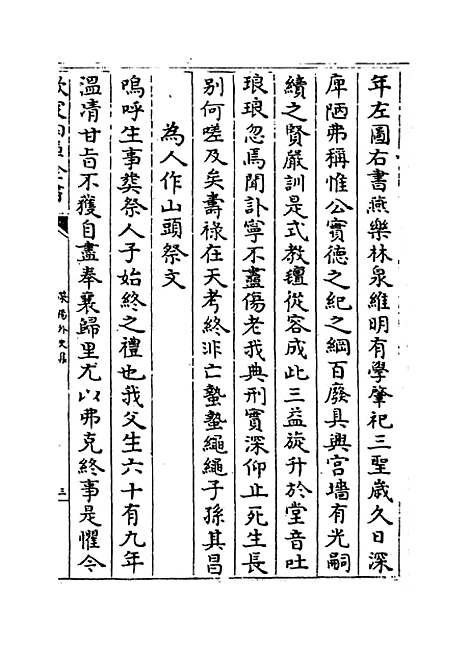 年左圖右書燕樂林泉維明有學肇祀三聖歲久日深
庳陋弗稱惟公實德之紀之綱百廢具興宫墻有光嗣
續之賢嚴訓是式教䆃從容成此三益旋升於堂音吐
琅琅忽焉聞訃寧不盡傷老我典刑實深仰止死生長
别何嗟及矣壽禄在天考終非亡蟄蟄繩繩子孫其昌
為人作山頭祭文
嗚呼生事葬祭人子始終之禮也我父生六十有九年
溫凊甘㫖不獲自盡奉襄歸里尤以弗克終事是懼今
欽定四庫全書
外文集
三